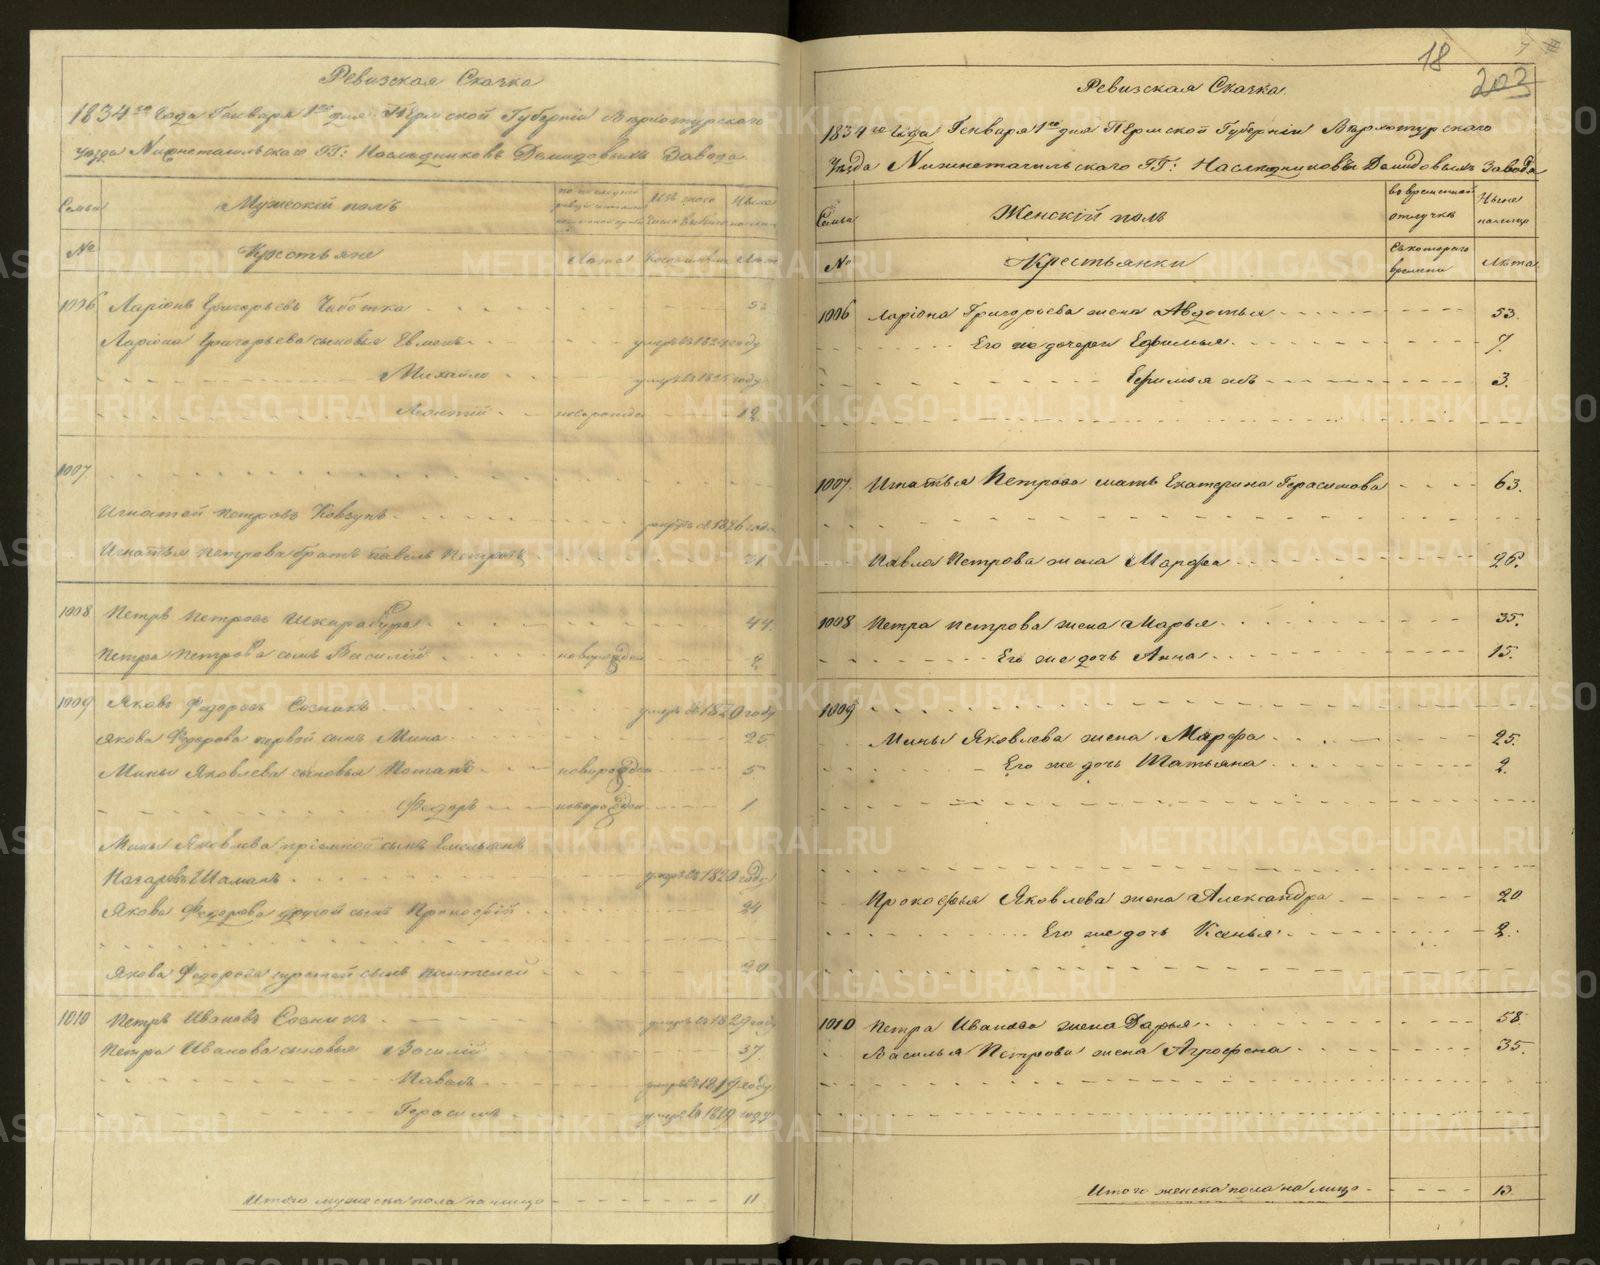 Ревизская Сказка
1834го Года Генваря 1го дня Пермской Губернии Верхотурскаго
Уезда Нижнетагильскаго ГГ: Наследниковъ Демидовыхъ Завода
Семьи
Мужескiй полъ
Изъ того числа выбыло
Ныне налицо
№
Крестьяне
Лета
Когда именно
Лета
1006 Ларiонъ Григорьевъ Чиботка
Ларiона Григорьева сыновья Евменъ умеръ въ 1824 году
Михайло умеръ въ 1825 году
Леонтiй новорожден 12
1007
Игнатей Петровъ Ковзунъ
Игнатья Петрова братъ Павелъ Петровъ
1008 Петръ Петровъ 44
Петра Петрова сынъ Василiй новорожден 2
1009 Яковъ Федоровъ Созникъ умеръ въ 1820 году
Якова Федорова первой сынъ Мина 25
Мины Яковлева сыновья Потапъ новорожден 5
Федоръ новорожден 1
Мины Яковлева прiемной сынъ Емельянъ
Назаровъ Шаманъ умеръ въ 1820 году
Якова Федорова другой сынъ Прокофiй 24
Якова Федорова третей сынъ Пантелей 20
1010 Петръ Ивановъ Созникъ умеръ въ 1829 году
Петра Иванова сыновья Василiй 37
Павелъ умеръ въ 1819 году
Герасимъ умеръ въ 1819 году
Итого мужеска пола на лицо 11
18
203
Ревизская Сказка
1834го Года Генваря 1го дня Пермской Губернiи Верхотурскаго
Уезда Нижнетагильскаго ГГ: Наследниковъ Демидовыхъ Завода
Семьи
Женскiй полъ
во временной отлучке
Ныне налицо
№
Крестьянки
Съ котораго времени
Лета
1006 Ларiона Григорьева жена Авдотья 53.
Его же дочери Ефимья 7.
Ефимья жъ 3.
1007 Игнатья Петрова мать Екатерина Герасимова 63.
Павла Петрова жена Марфа 26.
1008 Петра Петрова жена Марья 35.
Его же дочь Анна 15.
1009
Мины Яковлева жена Марфа 25.
Его же дочь Татьяна 2.
Прокофья Яковлева жена Александра 20
Его же дочь 2.
1010 Петра Иванова жена Дарья 58
Василья Петрова жена Агрофена 35.
Итого женска пола на лицо 13
METRIKI.GASO-URAL.RU